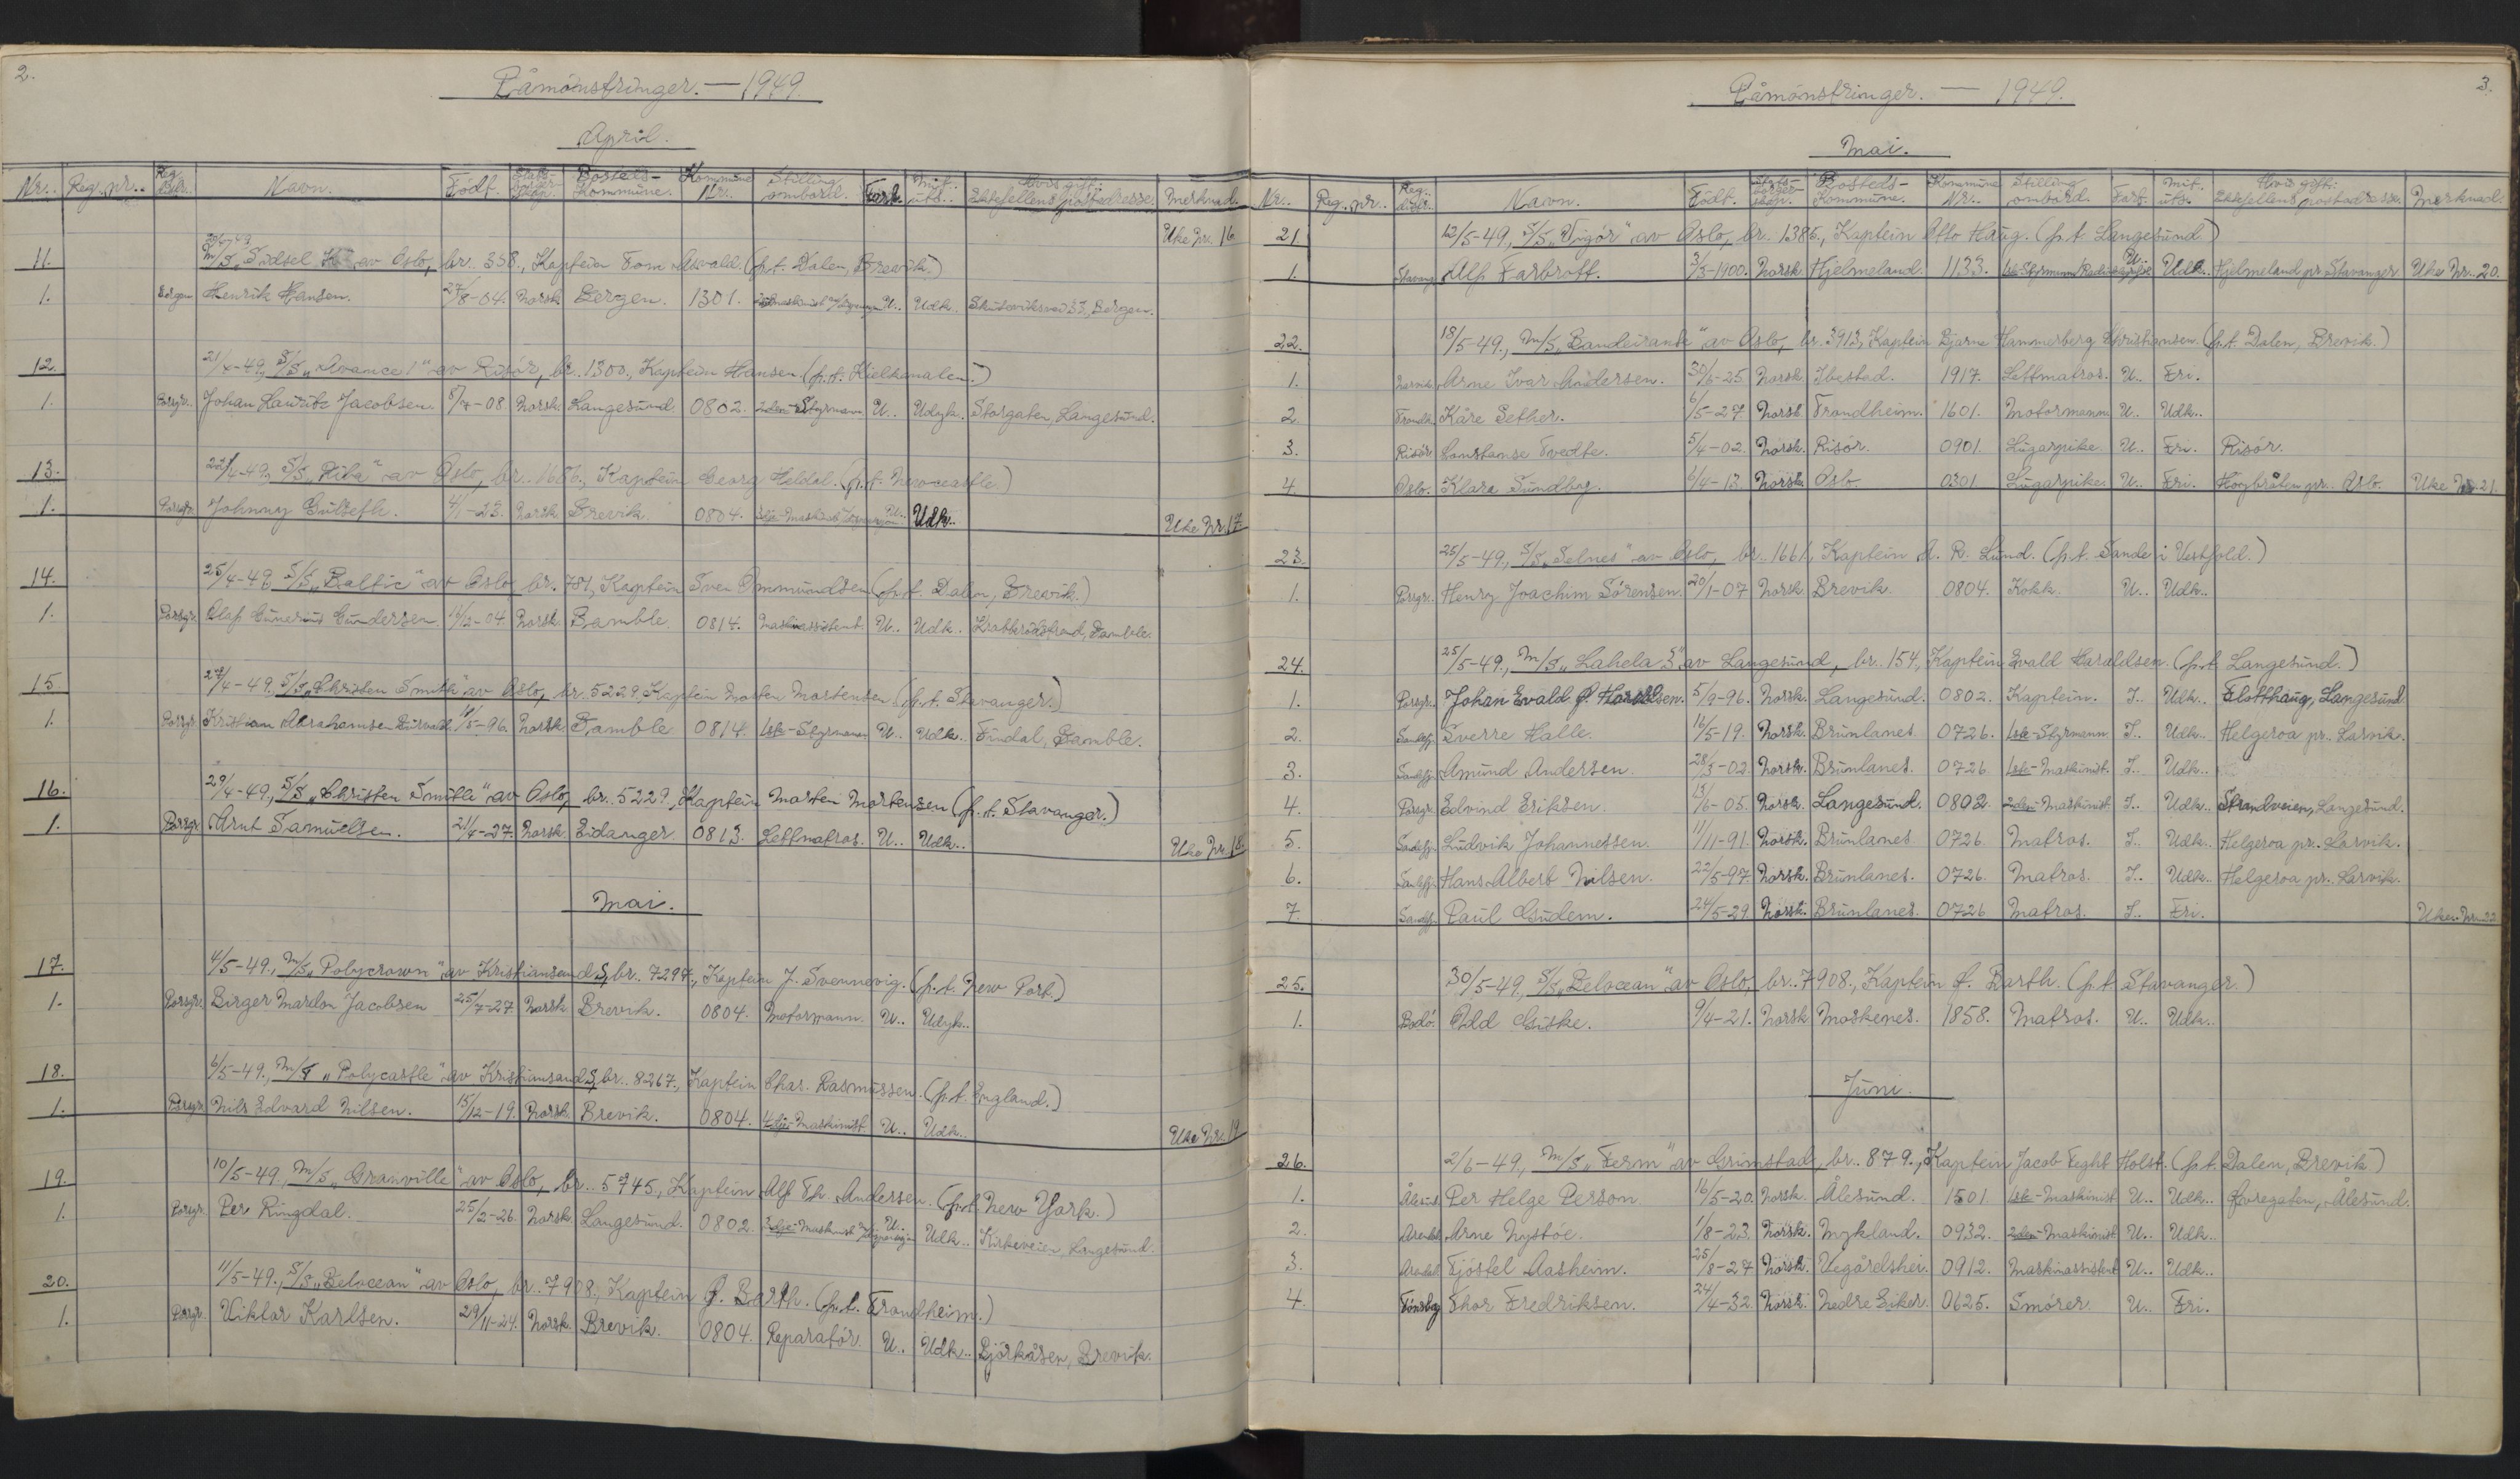 2.
Påmönstringer. — 1949.
April.
Nr.. Reg. nr.. Reg. distr.. Navn. Födt. Stats-borger-skap. Bosteds-Kommune. Kommune Nr. Stilling ombord. Fart. Mil. uts.. Hvis gift: Ektefellens postadresse. Merknad.
Uke Nr. 16
11. M/S „Sidsel av Oslo, br. 358., Kaptein Tom Asvald. (p.t. Dalen, Brevik.)
1. Bergen Henrik Hansen. 27/8-04. Norsk Bergen. 1301. U.. Udk. Skuteviksvei 33, Bergen.
12. 21/4-49., S/S „Avance 1" av Risör, br. 1300., Kaptein Hansen. (p.t. Kielkanalen.)
1. Porsgr. Johan Lauritz Jacobsen. 5/7-08 Norsk. Langesund. 0802. 2den-Styrmann. U.. Udyk.. Storgaten, Langesund.
13. 22/4-49., S/S „Rita" av Oslo, br. 1656., Kaptein Georg Heldal. (p.t. Newcastle.)
1. Porsgr. Johnny Gulseth. 4/1-23. Norsk. Brevik. 0804. U.. Udk..
Uke Nr. 17
14. 25/4-49, S/S „Baltic" av Oslo, br. 781, Kaptein Sven Ommundsen (p.t. Dalen, Brevik.)
1. Porsgr. Olaf Gunerius Gundersen. 14/12-04. Norsk. Bamble. 0814. Maskinassistent. U.. Udk.. Krabberödstrand, Bamble.
15. 27/4-49. S/S „Christen Smith" av Oslo, br. 5229, Kaptein Morten Mortensen. (p.t. Stavanger.)
1. Porsgr. Kristian Abrahamsen 19/5-96. Norsk. Bamble 0814. 1ste-Styrmann U.. Udk.. Findal, Bamble.
16. 29/4-49., S/S „Christen Smith" av Oslo, br. 5229., Kaptein Morten Mortensen (p.t. Stavanger.)
1. Porsgr. Arnt Samuelsen. 21/4-27. Norsk. Eidanger 0813. Lettmatros. U.. Udk..
Uke Nr. 18.
Mai.
17. 4/5-49., M/S „Polycrown" av Kristiansand S, br. 7297., Kaptein J. Svennevig. (p.t. New Port.)
1. Porsgr. Birger Mardon Jacobsen 25/7-27. Norsk. Brevik. 0804. Motormann. U.. Udyk..
18. 6/5-49., M/T „Polycastle" av Kristiansand S, br. 8267., Kaptein Chas. Rasmussen. (p.t. England.)
1. Porsgr. Nils Edvard Nilsen. 15/12-19. Norsk. Brevik. 0804. 4de-Maskinist. U.. Udk..
Uke Nr. 19
19. 10/5-49. M/S „Granville" av Oslo, br. 5745, Kaptein Alf Th. Andersen. (p.t. New York.)
1. Porsgr. Per Ringdal. 25/2-26. Norsk. Langesund. 0802. U.. Udk.. Kirkeveien, Langesund.
20. 11/5-49., S/S „Belocean" av Oslo, br. 7908., Kaptein Ø. Barth. (p.t. Trondheim.)
1. Porsgr. Viktor Karlsen. 29/11-24. Norsk. Brevik. 0804. Reparatör. U.. Udk.. Björkåsen, Brevik.
3.
Påmönstringer. — 1949.
Mai.
Nr.. Reg. nr.. Reg. distr.. Navn. Födt. Stats-borger-skap. Bosteds-Kommune. Kommune Nr.. Stilling ombord. Fart. Mil. uts. Hvis gift: Ektefellens postadresse. Merknad.
21. 12/5-49., S/S „Vigör" av Oslo, br. 1385., Kaptein Otto Haug. (p.t. Langesund.)
1. Stavang. Alf Farbrott. 3/3-1900. Norsk. Hjelmeland. 1133. U.. Udk.. Hjelmeland pr. Stavanger Uke Nr. 20.
22. 18/5-49., M/S „Bandeirante" av Oslo, br. 3913, Kaptein Bjarne Hammerberg Christiansen. (p.t. Dalen, Brevik.)
1. Narvik Arne Ivar Andersen. 30/6-25. Norsk. Ibestad. 1917. Lettmatros. U.. Fri.
2. Trondh. Kåre Sether. 6/5-27. Norsk Trondheim. 1601. Motormann. U.. Udk..
3. Risör Constanse Tvedte. 5/4-02. Norsk. Risör. 0901. Lugarpike. U.. Fri. Risör.
4. Oslo. Klara Sundbog. 6/4-13. Norsk. Oslo 0301. Lugarpike. U.. Fri. Höybråten pr. Oslo. Uke Nr. 21.
23. 25/5-49., S/S „Selnes" av Oslo, br. 1661, Kaptein A. R. Lund. (p.t. Sande i Vestfold.)
1. Porsgr. Henry Joachim Sörensen. 20/1-07 Norsk. Brevik. 0804. Kokk. U.. Udk..
24. 25/5-49., M/S „Lahela 3" av Langesund, br. 154, Kaptein Evald Haraldsen. (p.t. Langesund.)
1. Porsgr. Johan Evald Ø. Haraldsen. 5/9-96. Norsk. Langesund. 0802. Kaptein. I.. Udk.. Flotthaug, Langesund
2. Sandefj. Sverre Halle. 16/5-19. Norsk. Brunlanes. 0726. 1ste-Styrmann. I.. Udk.. Helgeroa pr. Larvik.
3. Sandefj. Amund Andersen. 28/3-02. Norsk. Brunlanes. 0726. 1ste-Maskinist. I.. Udk..
4. Porsgr. Edvind Eriksen. 13/6-05. Norsk. Langesund. 0802. 2den-Maskinist. I.. Udk.. Strandveien, Langesund.
5. Sandefj. Ludvik Johannessen. 11/11-91. Norsk. Brunlanes 0726. Matros. I.. Udk.. Helgeroa pr. Larvik.
6. Sandefj. Hans Albert Nilsen. 22/5-97. Norsk. Brunlanes. 0726. Matros. I.. Udk.. Helgeroa pr. Larvik.
7. Sandefj. Paul Gudem. 24/5-29. Norsk. Brunlanes. 0726 Matros. I.. Fri. Uke Nr. 22
25. 30/5-49., S/S „Belocean" av Oslo, br. 7908., Kaptein Ø. Barth. (p.t. Stavanger.)
1. Bodö. Odd Giske. 9/4-21. Norsk Moskenes. 1858. Matros. U.. Udk..
Juni.
26. 2/6-49., M/S „Ferm" av Grimstad, br. 879., Kaptein Jacob Feght Holst. (p.t. Dalen, Brevik)
1. Ålesund Per Helge Person. 16/5-20. Norsk. Ålesund. 1501. 1ste-Maskinist U.. Udk.. Øvregaten, Ålesund.
2. Arendal Arne Nystöe. 1/8-23. Norsk. Mykland. 0932. 2den-Maskinist U.. Udk..
3. Arendal. Tjöstel Aasheim. 25/8-27 Norsk. Vegårdshei. 0912. Maskinassistent U.. Udk..
4. Tönsberg Thor Fredriksen. 24/4-32. Norsk. Nedre Eiker. 0625. Smörer. U.. Fri.